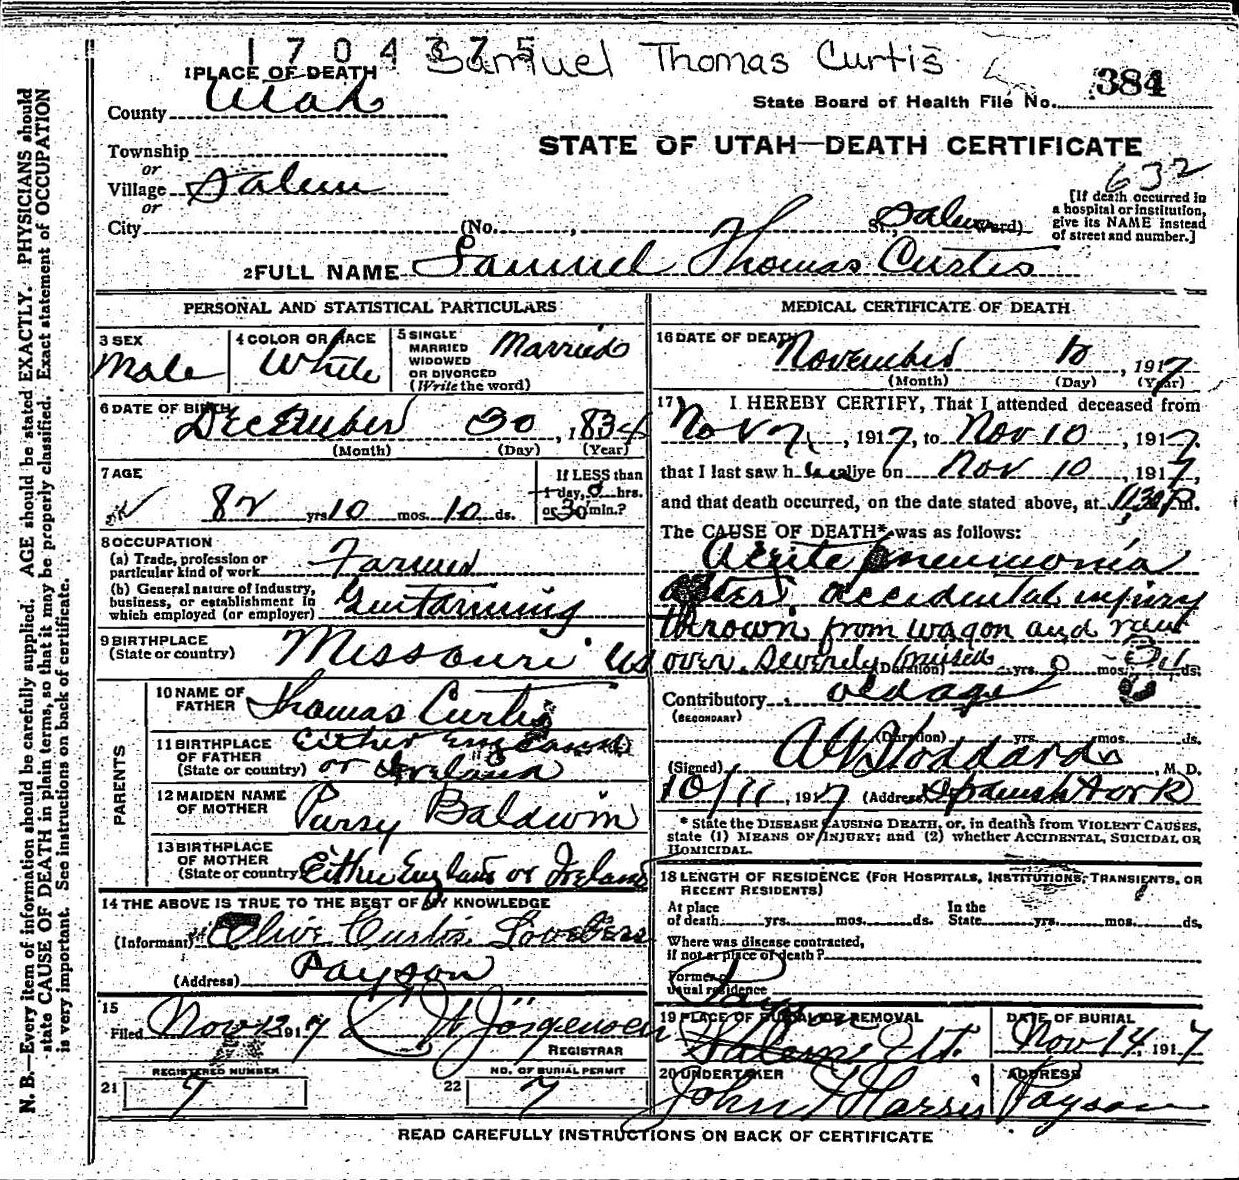 1704375 Samuel Thomas Curtis
1 PLACE OF DEATH
County Utah
State Board of Health File No. 384
Township
or
Village Salem
or
City (No. , St., Ward) Salem
STATE OF UTAH—DEATH CERTIFICATE
632
[If death occurred in
a hospital or institution,
give its NAME instead
of street and number.]
2 FULL NAME Samuel Thomas Curtis
PERSONAL AND STATISTICAL PARTICULARS
3 SEX
Male
4 COLOR OR RACE
White
5 SINGLE
MARRIED
WIDOWED
OR DIVORCED
(Write the word)
Married
6 DATE OF BIRTH
December 30, 1834
(Month) (Day) (Year)
7 AGE
82 yrs. 10 mos. 10 ds.
If LESS than
1 day, 0 hrs.
or 30 min.?
8 OCCUPATION
(a) Trade, profession or
particular kind of work Farmer
(b) General nature of industry,
business, or establishment in
which employed (or employer)
9 BIRTHPLACE
(State or country) Missouri US
PARENTS
10 NAME OF
FATHER Thomas Curtis
11 BIRTHPLACE
OF FATHER
(State or country) Either England
or Ireland
12 MAIDEN NAME
OF MOTHER Pursy Baldwin
13 BIRTHPLACE
OF MOTHER
(State or country) Either England or Ireland
14 THE ABOVE IS TRUE TO THE BEST OF MY KNOWLEDGE
(Informant) Olive Curtis
(Address) Payson
15
Filed Nov 13 1917 W Jorgensen
REGISTRAR
21 REGISTERED NUMBER 7
22 NO. OF BURIAL PERMIT 7
MEDICAL CERTIFICATE OF DEATH
16 DATE OF DEATH
November 10, 1917
(Month) (Day) (Year)
17 I HEREBY CERTIFY, That I attended deceased from
Nov 7, 1917, to Nov 10, 1917,
that I last saw h im alive on Nov 10, 1917,
and that death occurred, on the date stated above, at P.m.
The CAUSE OF DEATH* was as follows:
Acute pneumonia
after accidental injury
thrown from wagon and run
over. Severely bruised (Duration) yrs. 0 mos. ds.
Contributory old age
(SECONDARY)
(Duration) yrs. mos. ds.
(Signed) Stoddard, M. D.
10/11, 1917 (Address) Spanish Fork
* State the DISEASE CAUSING DEATH, or, in deaths from VIOLENT CAUSES,
state (1) MEANS OF INJURY; and (2) whether ACCIDENTAL, SUICIDAL OR
HOMICIDAL.
18 LENGTH OF RESIDENCE (FOR HOSPITALS, INSTITUTIONS, TRANSIENTS, OR
RECENT RESIDENTS)
At place
of death yrs. mos. ds. In the
State yrs. mos. ds.
Where was disease contracted,
if not at place of death?
Former or
usual residence
Payson
19 PLACE OF BURIAL OR REMOVAL
Salem
DATE OF BURIAL
Nov 14, 1917
20 UNDERTAKER
John Harris
ADDRESS
Payson
READ CAREFULLY INSTRUCTIONS ON BACK OF CERTIFICATE
N. B.—Every item of information should be carefully supplied. AGE should be stated EXACTLY. PHYSICIANS should
state CAUSE OF DEATH in plain terms, so that it may be properly classified. Exact statement of OCCUPATION
is very important. See instructions on back of certificate.